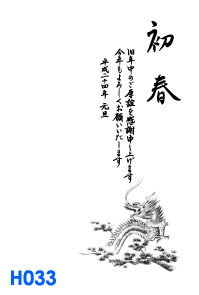 初春
旧年中のご厚誼を感謝申し上げます
今年もよろしくお願いいたします
平成二十四年 元旦
H033